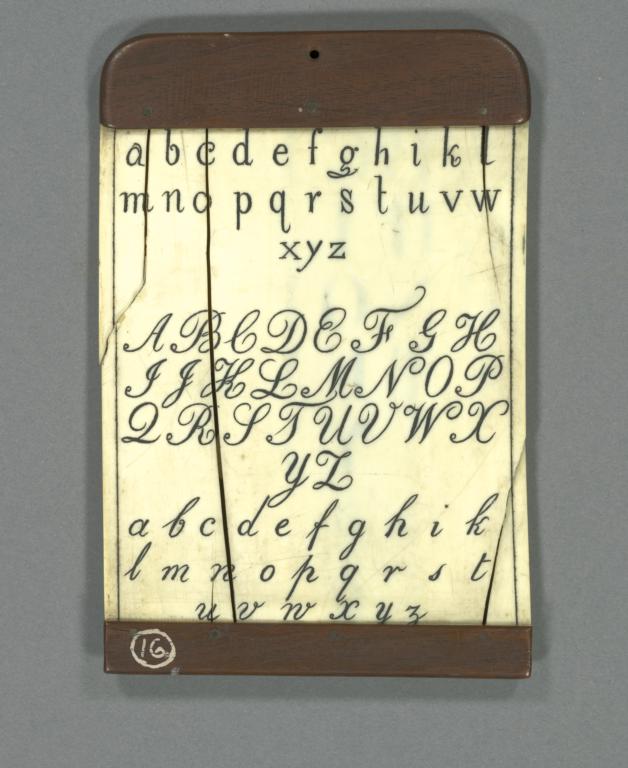 a b c d e f g h i k l
m n o p q r s t u v w
x y z
A B C D E F G H
I J K L M N O P
Q R S T U V W X
Y Z
a b c d e f g h i k
l m n o p q r s t
u v w x y z
16